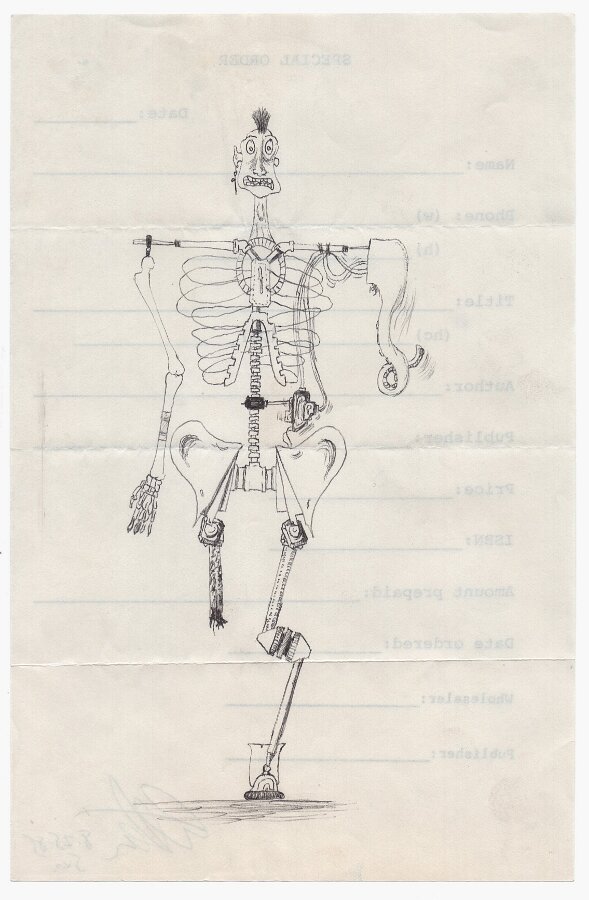 SPECIAL ORDER
Date:
Name:
Phone: (w)
(h)
Title:
(hc)
Author:
Publisher:
Price:
ISBN:
Amount prepaid:
Date ordered:
Wholesaler:
Publisher: